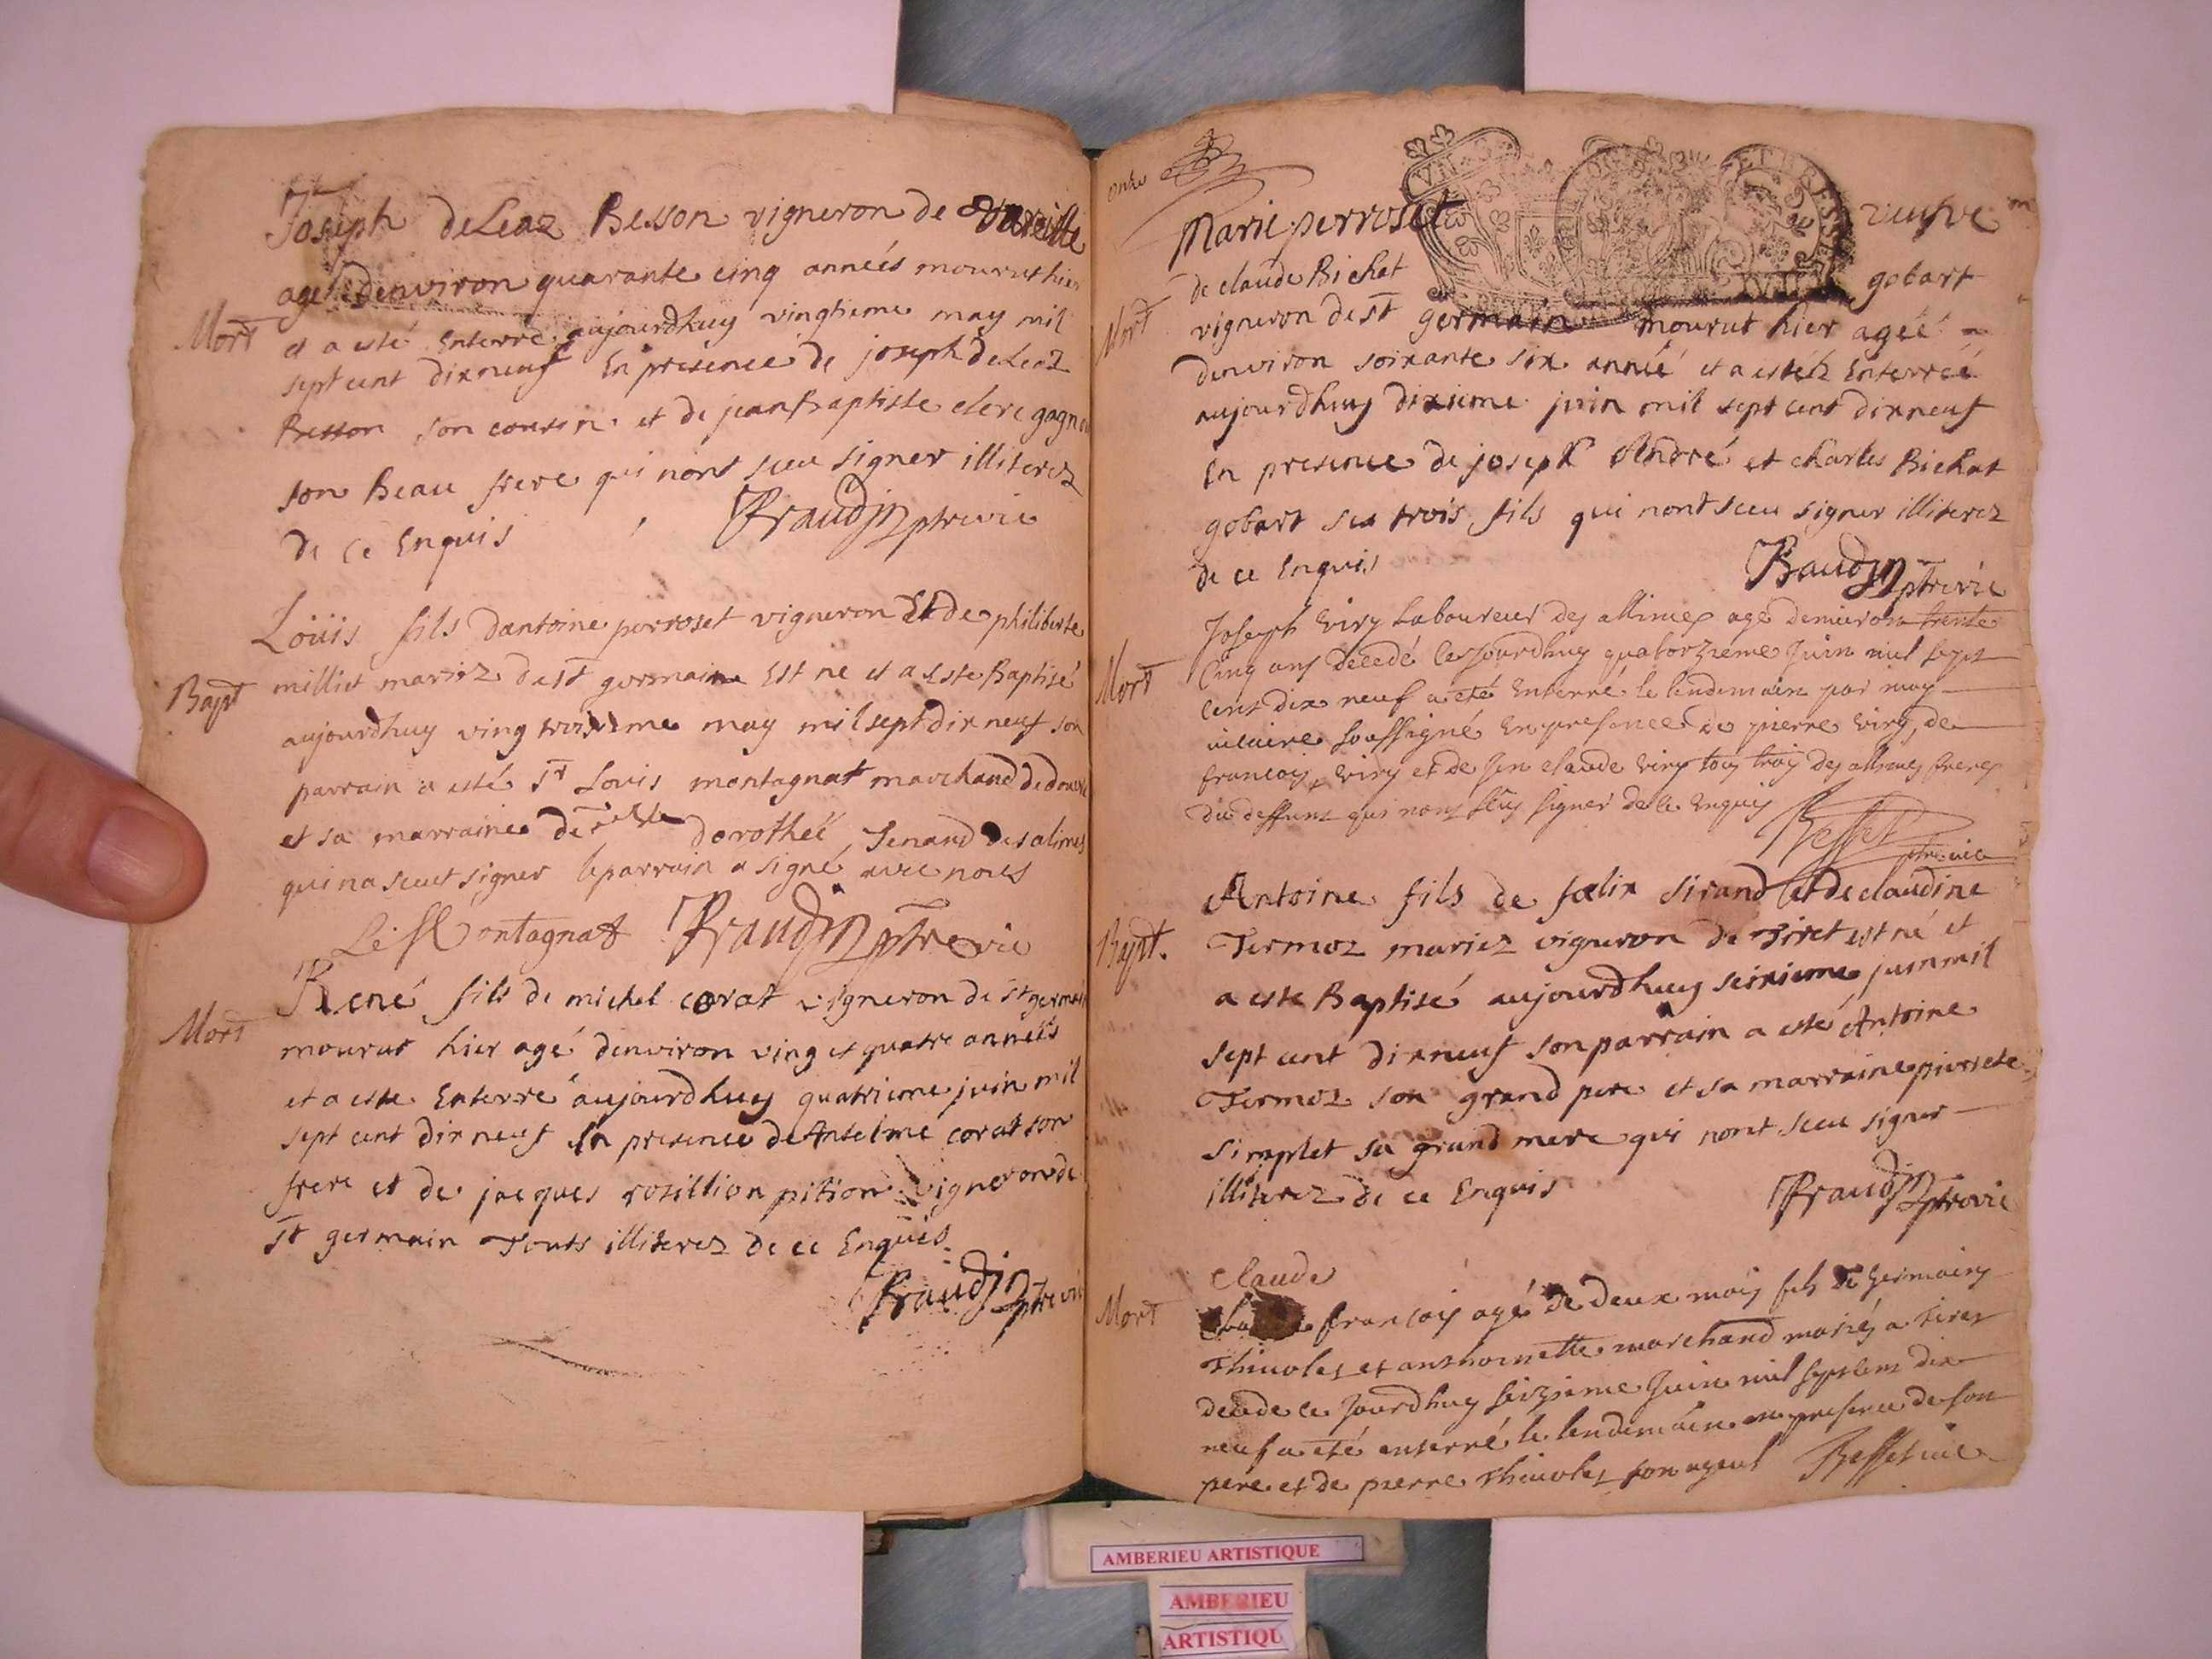 Joseph deLeaz Besson vigneron de Vareille
agé denviron quarante cinq années mourut hier
Mort
et a esté Enterré aujourdhuy vingtieme may mil
sept cent dixneuf En presence de joseph deLeaz
Besson son cousin et de jean baptiste clerc gagneu
son beau frere qui nont sceu signer illiterez
de ce Enquis
Praudin ptre vic
Loüis fils dantoine perroset vigneron Et de philiberte
Bapt
milliet mariez de st germain Est ne et a Este Baptisé
aujourdhuy ving troisieme may mil sept dixneuf son
parrain a esté sr Louis montagnat marchand de douvre
et sa marraine delle dorotheé Tenand des alimes
qui na sceut signer le parrain a signé avec nous
Montagnat Praudin ptre vic
René fils de michel corat vigneron de st germain
Mort
mourut hier agé denviron ving et quatre années
et a este Enterré aujourdhuy quatrieme juin mil
sept cent dixneuf En presence de Anselme corat son
frere et de jacques rosillion pition vigneron de
st germain Touts illiterez de ce Enquis
Praudin ptre vic
onze
Marie perroset veufve
de claude Bichat gobart
Mort
vigneron de st germain mourut hier agéé
denviron soixante six anneé et a estéz Enterreé
aujourdhuy dixieme juin mil sept cent dixneuf
En presence de joseph André et charles Bichat
gobart ses trois fils qui nont sceu signer illiterez
de ce Enquis
Praudin ptre vic
Joseph Viry Laboureur des allimes agé denviron trente
Mort
cinq ans decedé cejourdhuy quatorzieme Juin mil sept
cent dix neuf a eté Enterré le lendemain par moy
vicaire soussigné En presence de pierre Viry, de
francois Viry et de Jen claude Viry tous trois des allimes freres
du deffunt qui nont sçus signer de ce Enquis
Besset ptre vic
Antoine fils de fœlix sirand et de claudine
Bapt.
Termoz mariez vigneron de Tiret est né et
a este Baptisé aujourdhuy seixieme juin mil
sept cent dixneuf son parrain a esté Antoine
Termoz son grand pere et sa marraine pierrete
simplet sa grand mere qui nont sceu signer
illiterez de ce Enquis
Praudin ptre vic
Claude
Mort
francois agé de deux mois fils de Germain
Thevolet et anthoinette marchand mariés a Tiret
decede ce Jourdhuy seizieme Juin mil septcent dix
neuf a eté enterré le lendemain en presence de son
pere et de pierre Thevolet son ayeul Besset vic
AMBERIEU ARTISTIQUE
AMBERIEU
ARTISTIQU